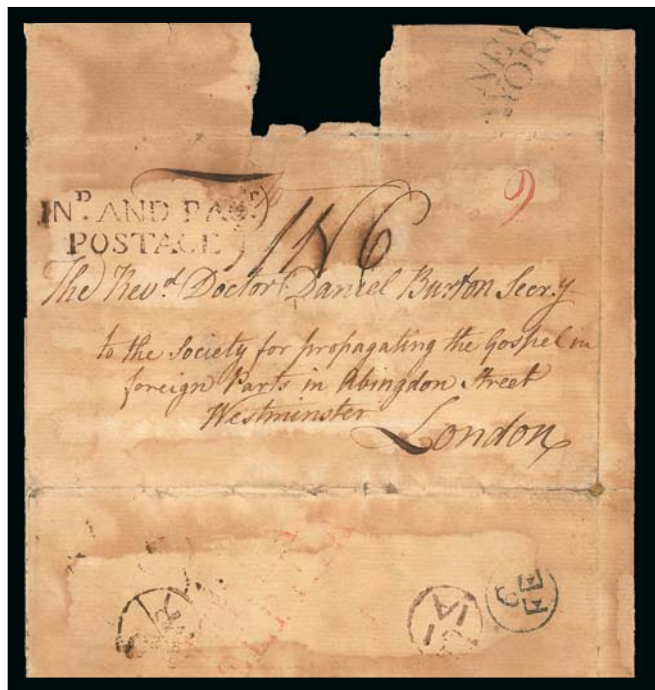 NEW
YORK
IND. AND PACT.
POSTAGE
1N6
9
The Revd. Doctor Daniel Burton Secry.
to the Society for propagating the Gospel in
foreign Parts in Abingdon Street
Westminster
London
IA
FE